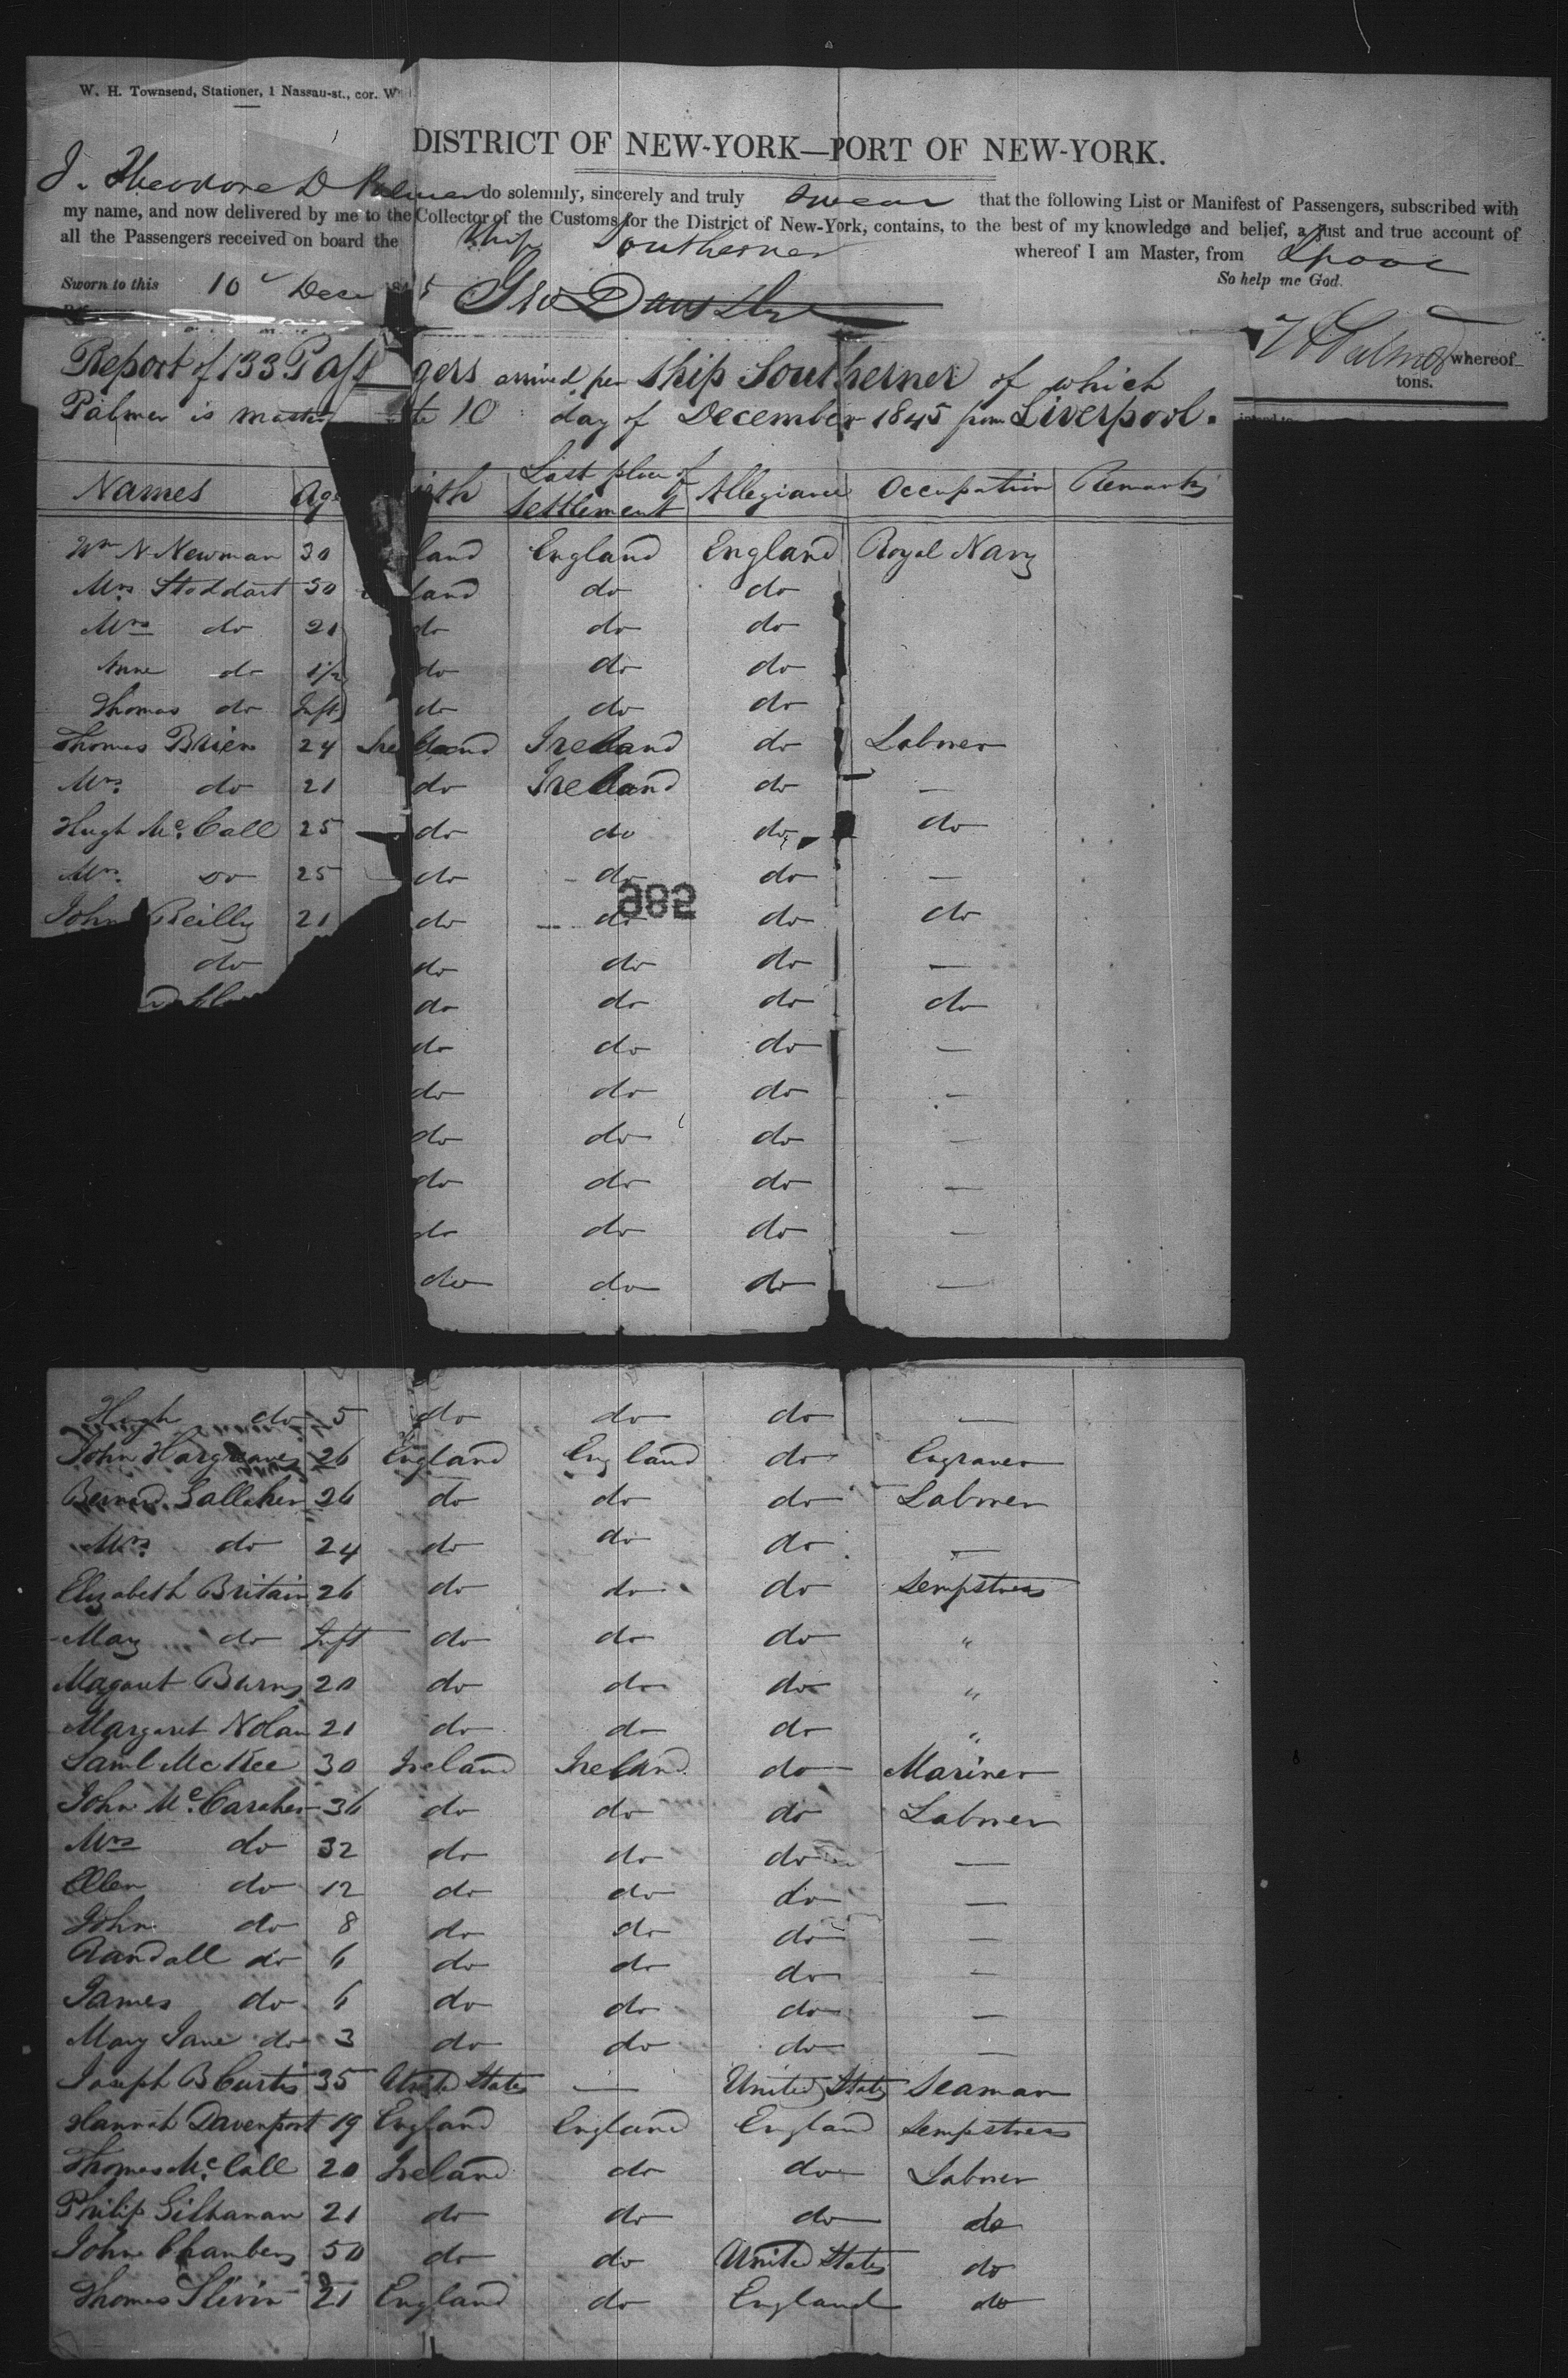 W. H. Townsend, Stationer, 1 Nassau-st., cor. W
DISTRICT OF NEW-YORK—PORT OF NEW-YORK.
I. Theodore D Palmer do solemnly, sincerely and truly swear that the following List or Manifest of Passengers, subscribed with
my name, and now delivered by me to the Collector of the Customs for the District of New-York, contains, to the best of my knowledge and belief, a just and true account of
all the Passengers received on board the Ship Southerner whereof I am Master, from Lpool
Sworn to this 10 Dece 1845 So help me God.
Geo
Palmer whereof
tons.
Report of 133 Pass gers arrived per Ship Southerner of which
Palmer is master 10 day of December 1845 from Liverpool.
Names Age irth Last place of Settlement Allegiance Occupation Remarks
Wm N. Newman 30 land England England Royal Navy
Mrs. Stoddart 50 land do do
Mrs do 21 do do do
Anne do 1½ do do do
Thomas do Inft do do do
Thomas Brien 24 Ireland Ireland do Labrer
Mrs. do 21 do Ireland do —
Hugh Mc Call 25 do do do do
Mrs. do 25 do do do —
John Reilly 21 do do do do
982
do do do do —
do do do do
do do do —
do do do —
do do do —
do do do —
do do do —
do do do —
Hugh do 5 do do do —
John Hargreaves 26 England England do Engraver
Bernd. Gallaher 26 do do do Labrer
Mrs. do 24 do do do —
Elizabeth Britain 26 do do do Sempstress
Mary do Inft do do do "
Magaret Burns 20 do do do "
Margaret Nolan 21 do do do "
Saml McKee 30 Ireland Ireland do Mariner
John Mc Caraher 36 do do do Labrer
Mrs do 32 do do do —
Ellen do 12 do do do —
John do 8 do do do —
Randall do 6 do do do —
James do 6 do do do —
Mary Jane do 3 do do do —
Joseph B Curtis 35 United States — United States Seaman
Hannah Davenport 19 England England England Sempstress
Thomas Mc Call 20 Ireland do do Labrer
Philip Gilhanan 21 do do do do
John Chambers 50 do do United States do
Thomas Slevin 21 England do England do